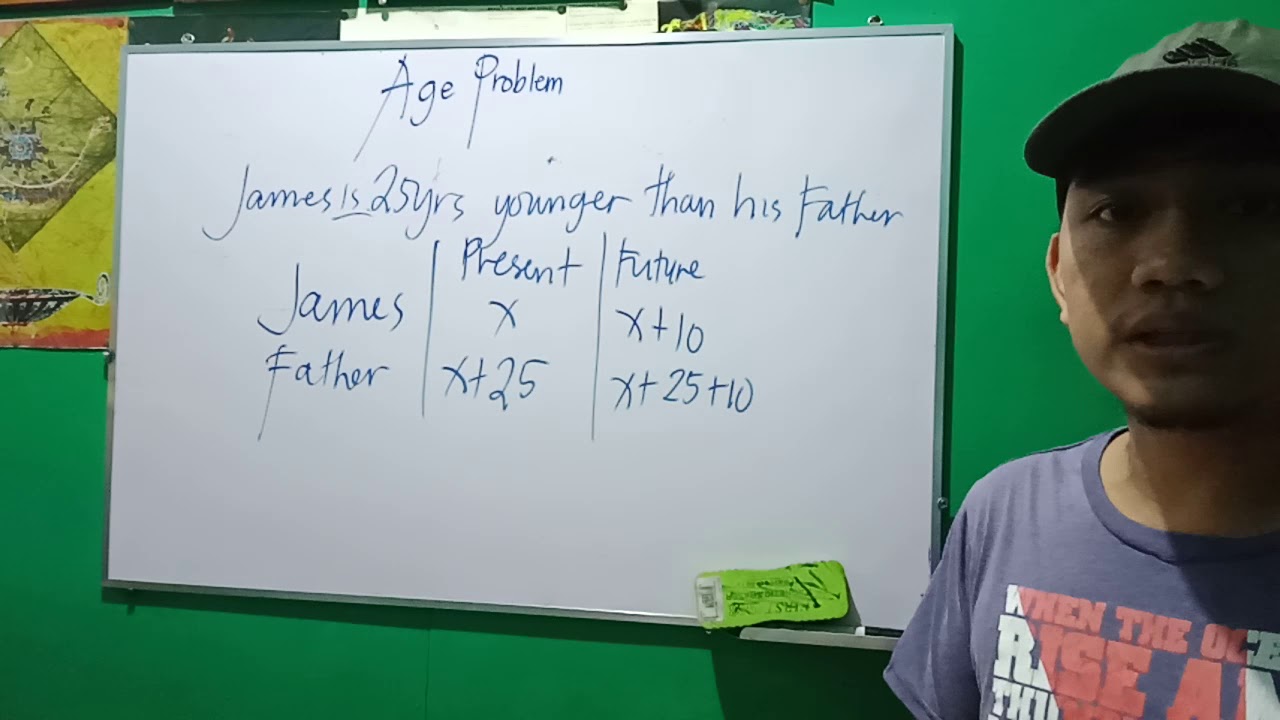 Age Problem
James is 25yrs younger than his Father
Present Future
James x x+10
Father x+25 x+25+10
WHEN THE
RISE A